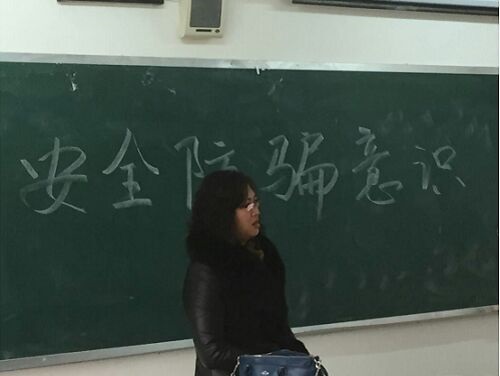 安全防骗意识